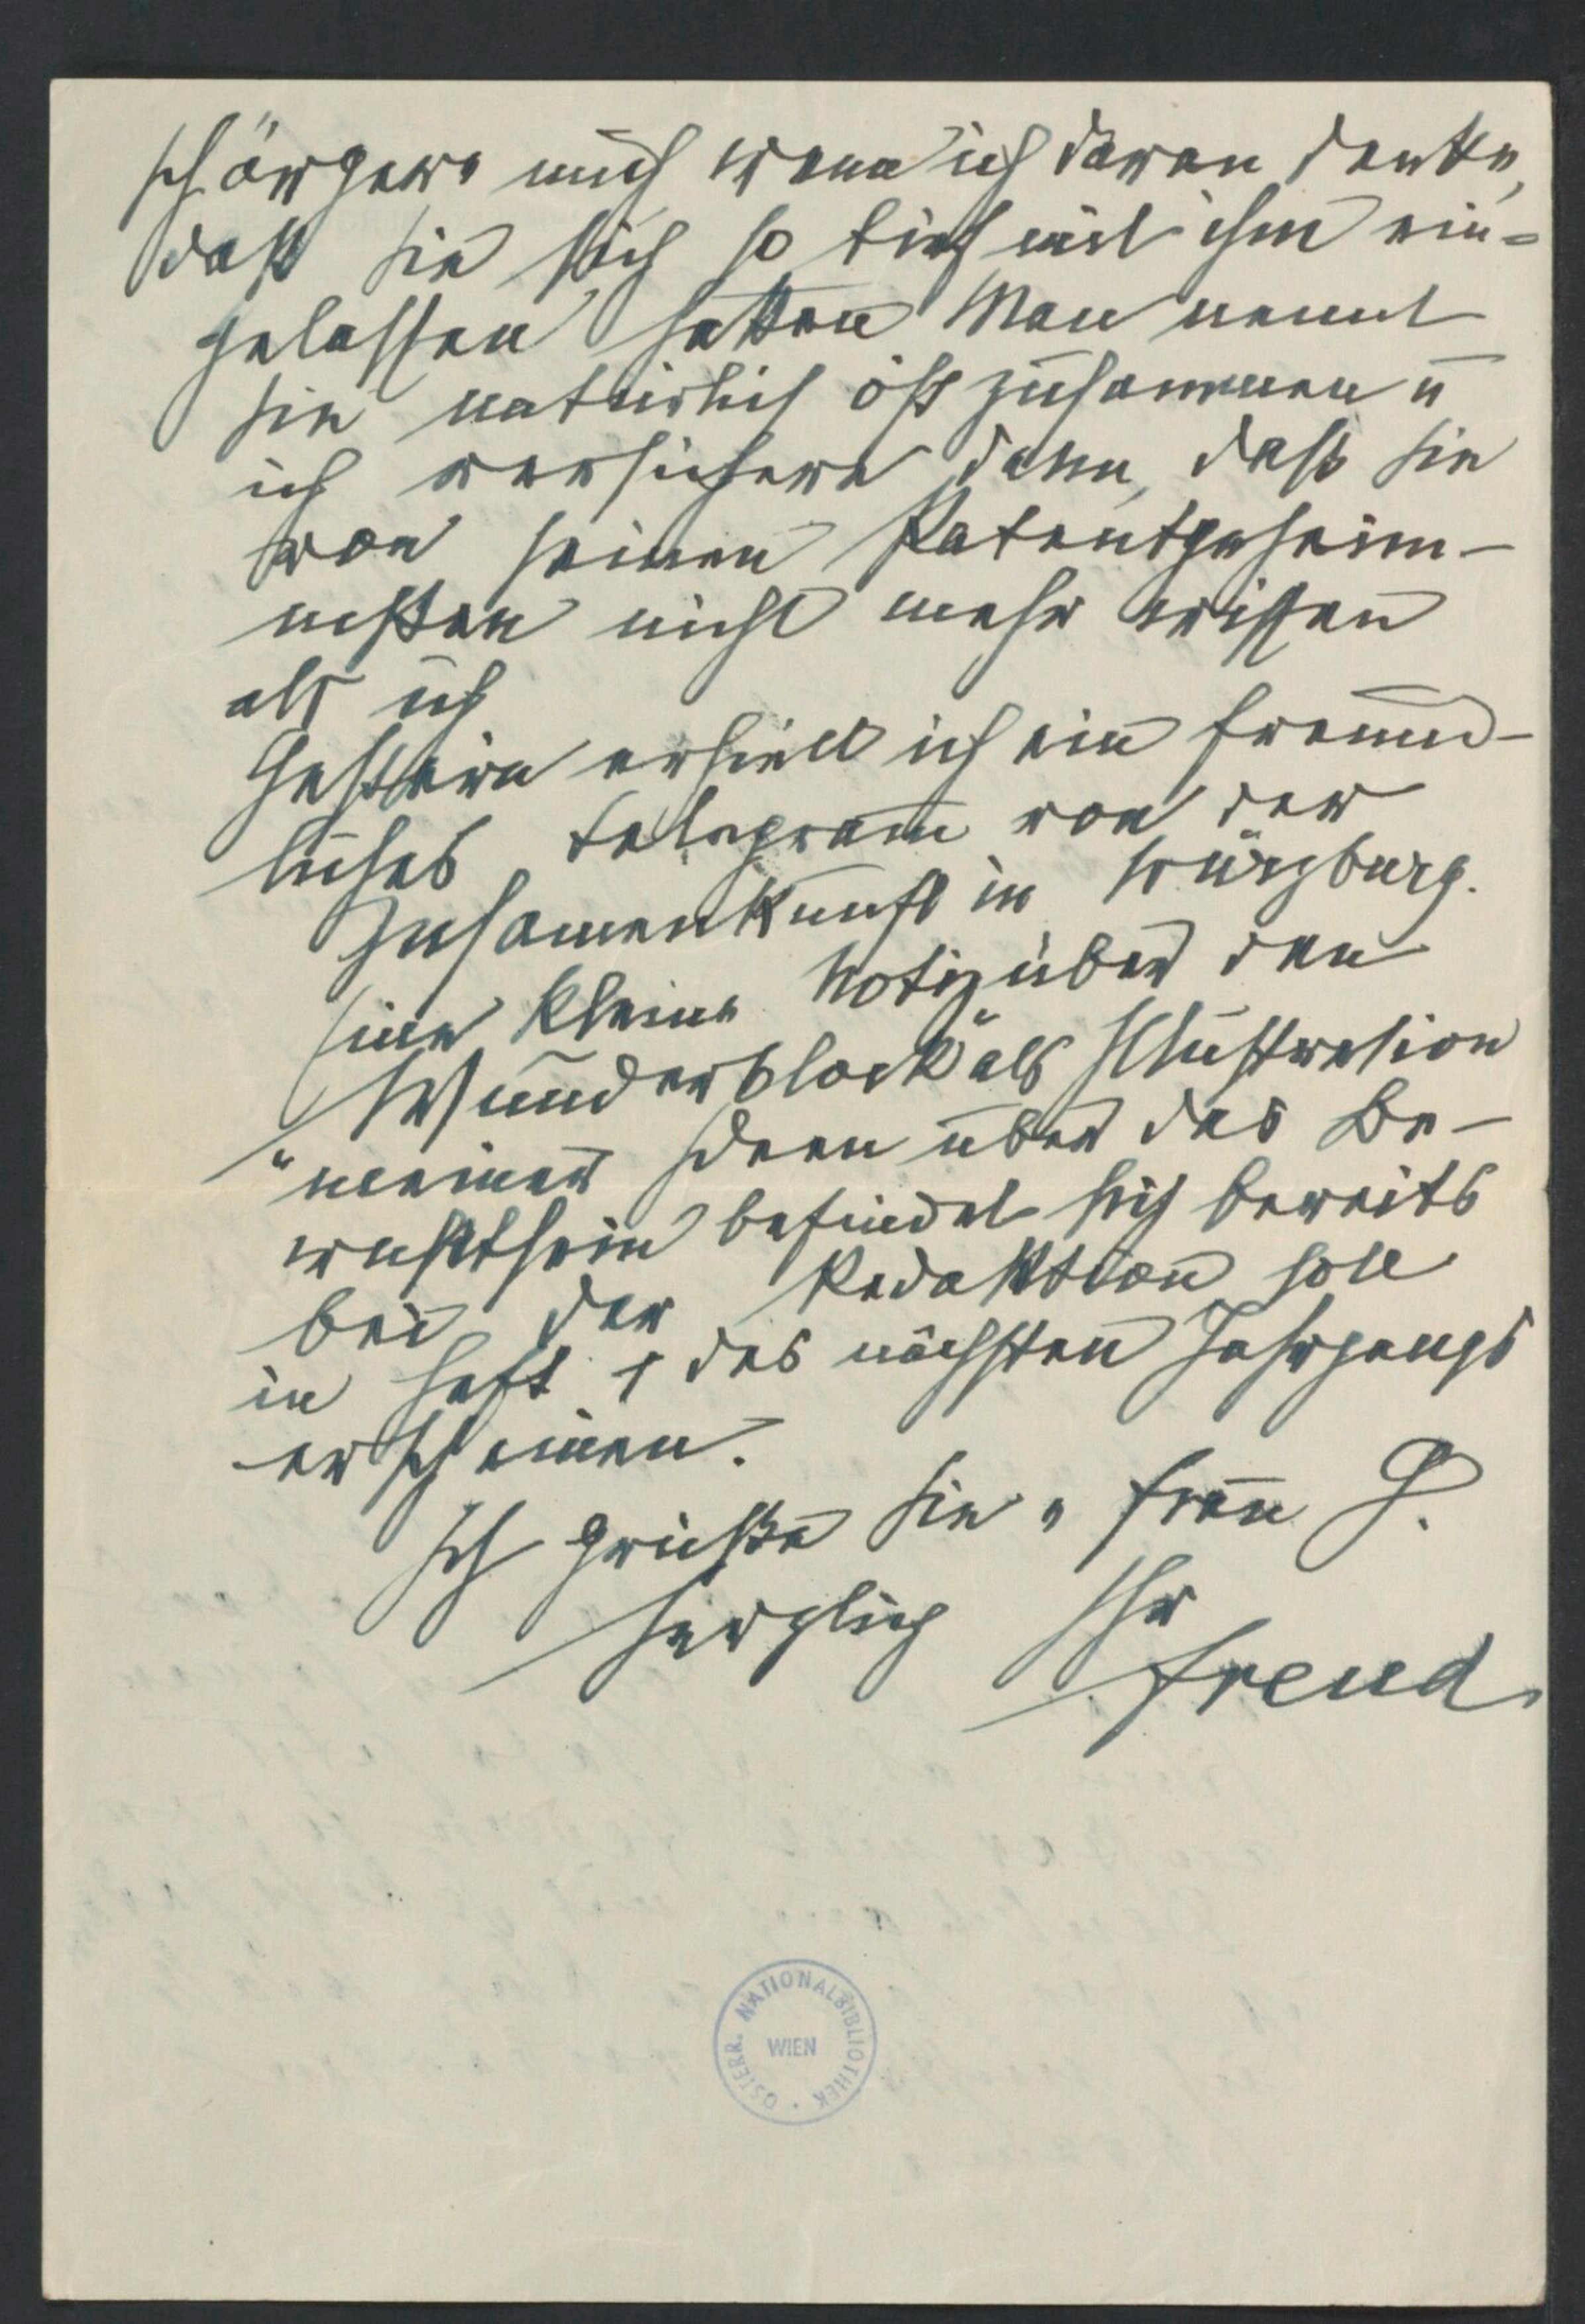 Ich ärgere mich wenn ich daran denke,
daß Sie sich so tief mit ihm ein=
gelassen hatten. Man nennt
Sie natürlich oft zusammen u
ich versichere dann, daß Sie
von seinen Patentgeheim-
nissen nicht mehr wissen
als ich
Gestern erhielt ich ein freund-
liches Telegramm von der
Zusamenkunft in Würzburg.
Eine kleine Notiz über den
"Wunderblock" als Illustration
meiner Ideen über das Be-
wußtsein befindet sich bereits
bei der Redaktion soll
in Heft 1 des nächsten Jahrgangs
erscheinen.
Ich grüße Sie u Frau G.
herzlich Ihr
Freud
ÖSTERR. NATIONALBIBLIOTHEK
WIEN